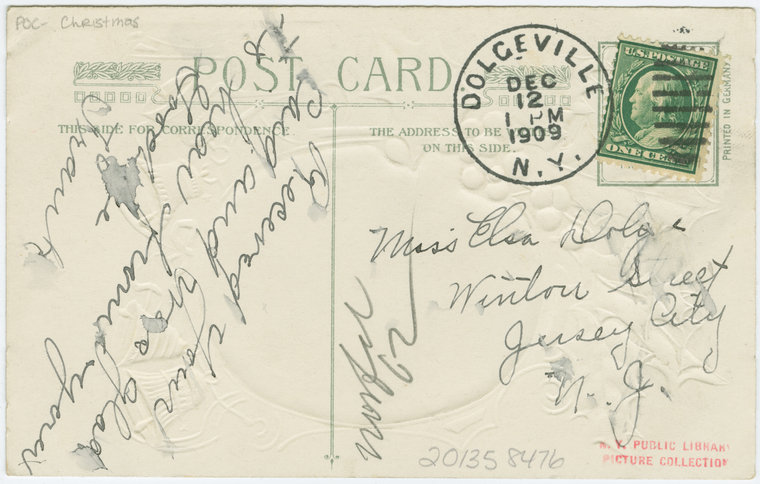 POC- Christmas
POST CARD
THIS SIDE FOR CORRESPONDENCE.
THE ADDRESS TO BE
ON THIS SIDE.
DOLGEVILLE
DEC
12
1 PM
1909
N.Y.
U.S. POSTAGE
ONE CENT
PRINTED IN GERMANY
I Received your
card and was glad
to hear from you
Love
Frank
Miss Elsa Dolge
Street
Jersey City
N. J.
201358476
N. Y. PUBLIC LIBRARY
PICTURE COLLECTION